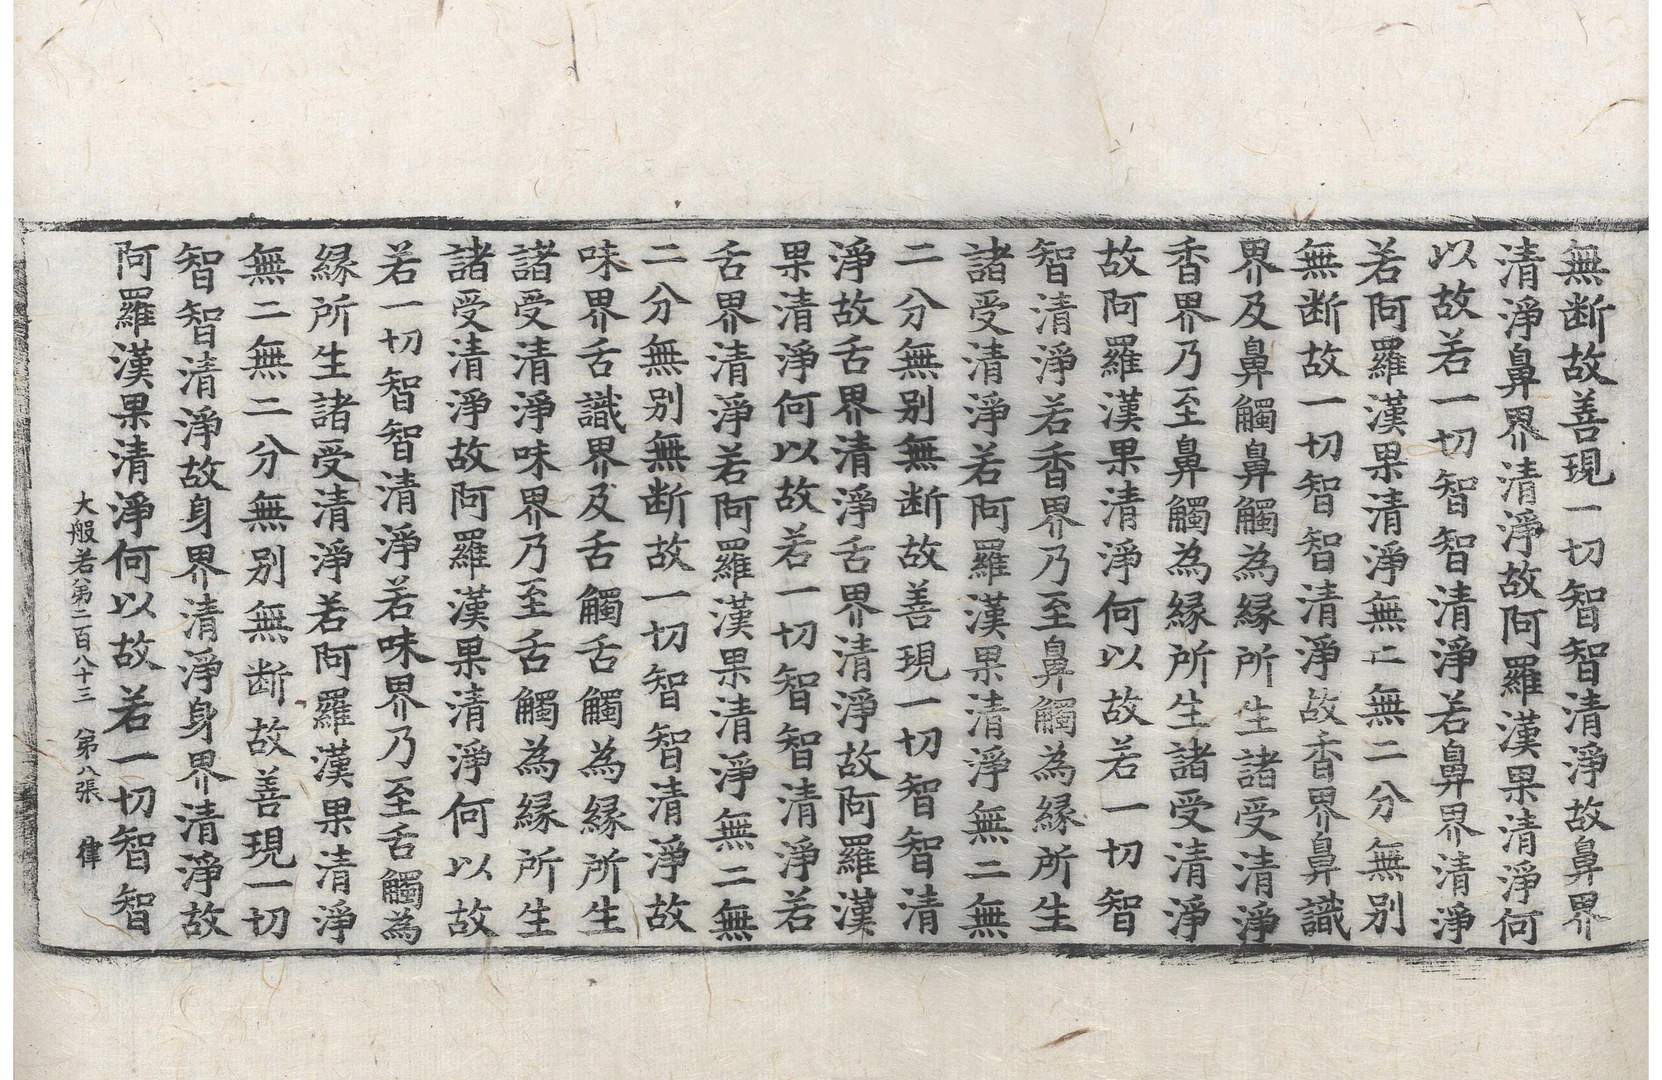 無断故善現一切智智清淨故鼻界
清淨鼻界清淨故阿羅漢果清淨何
以故若一切智智清淨若鼻界清淨
若阿羅漢果清淨無二無二分無別
無断故一切智智清淨故香界鼻識
界及鼻觸鼻觸為縁所生諸受清淨
香界乃至鼻觸為縁所生諸受清淨
故阿羅漢果清淨何以故若一切智
智清淨若香界乃至鼻觸為縁所生
諸受清淨若阿羅漢果清淨無二無
二分無別無断故善現一切智智清
淨故舌界清淨舌界清淨故阿羅漢
果清淨何以故若一切智智清淨若
舌界清淨若阿羅漢果清淨無二無
二分無別無断故一切智智清淨故
味界舌識界及舌觸舌觸為縁所生
諸受清淨味界乃至舌觸為縁所生
諸受清淨故阿羅漢果清淨何以故
若一切智智清淨若味界乃至舌觸為
縁所生諸受清淨若阿羅漢果清淨
無二無二分無別無断故善現一切
智智清淨故身界清淨身界清淨故
阿羅漢果清淨何以故若一切智智
大般若第二百八十三 第八張 律